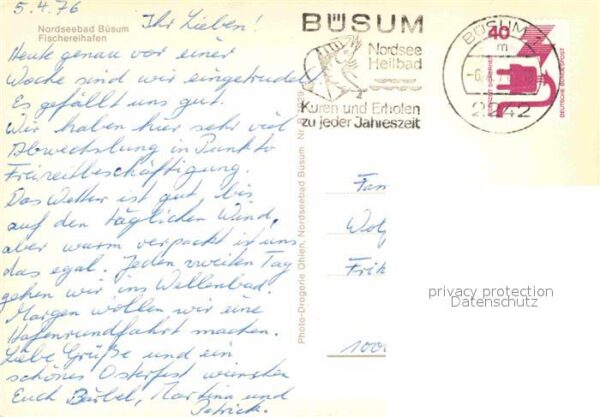 5.4.76
Nordseebad Büsum
Fischereihafen
Ihr Lieben!
Heute genau vor einer
Woche sind wir eingetrudelt.
Es gefällt uns gut.
Wir haben hier sehr viel
Abwechslung in Punkto
Freizeitbeschäftigung.
Das Wetter ist gut bis
auf den täglichen Wind,
aber warm verpackt ist uns
das egal. Jeden zweiten Tag
gehen wir ins Wellenbad.
Morgen wollen wir eine
Hafenrundfahrt machen.
Liebe Grüße und ein
schönes Osterfest wünschen
Euch Bärbel, Martina und
Patrick.
Photo-Drogerie Ohlen, Nordseebad Büsum
BÜSUM
Nordsee
Heilbad
Kuren und Erholen
zu jeder Jahreszeit
BÜSUM 1
2242
40
DEUTSCHE BUNDESPOST
Fam
Wolf
Frit
1000
privacy protection
Datenschutz